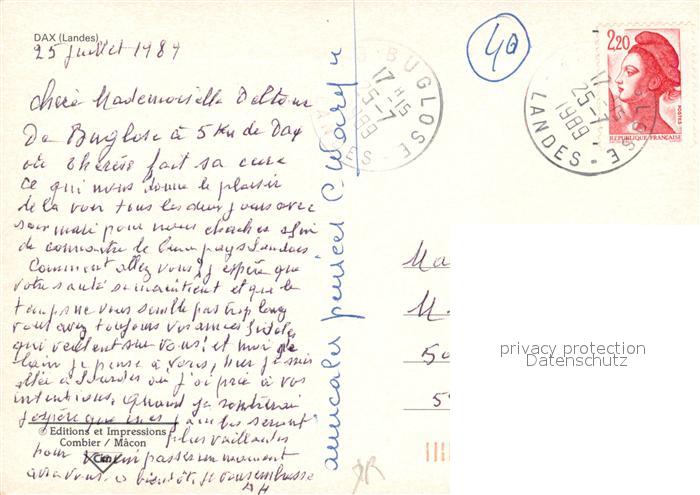 DAX (Landes)
25 juillet 1989
Chère Mademoiselle Deltour
De Buglose à 5 km de Dax
où Thérèse fait sa cure
ce qui nous donne le plaisir
de la voir tous les deux jours avec
son mari pour nous chercher afin
de connaître le beau pays landais
Comment allez vous? j'espère que
votre santé se maintient et que le
temps ne vous semble pas trop long
vous avez toujours vos amies fidèles
qui veillent sur vous! et moi de
loin je pense à vous, hier je suis
allée à Lourdes où j'ai prié à vos
intentions. Quand je rentrerai
j'espère que mes jambes seront
plus vaillantes
pour passer un moment
avec vous. à bientôt, je vous embrasse
© Editions et Impressions
Combier / Mâcon
Cim
amicales
40
2,20
POSTES
REPUBLIQUE FRANÇAISE
BUGLOSE
17 H 15
25-7
1989
LANDES
BUGLOSE
17 H 15
25-7
1989
LANDES
privacy protection
Datenschutz